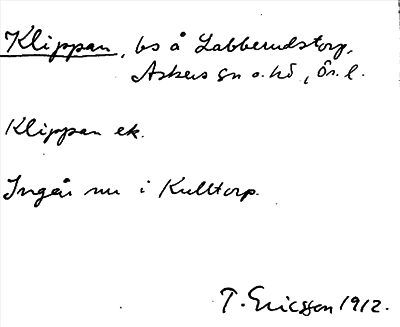 Klippan, bs å Labberudstorp,
Askers sn o. hd, Ör. l.
Klippan ek.
Ingår nu i Kulltorp.
T. Ericsson 1912.